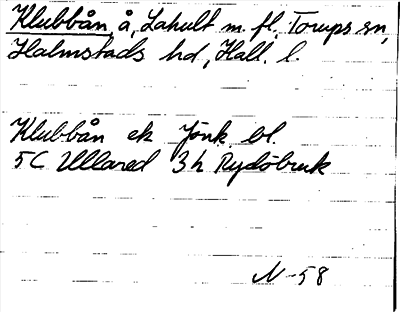 Klubbån å, Lahult m. fl., Torups sn,
Halmstads hd, Hall. l.
Klubbån ek Jönk. bl.
5C Ullared 3h Rydöbruk
N-58